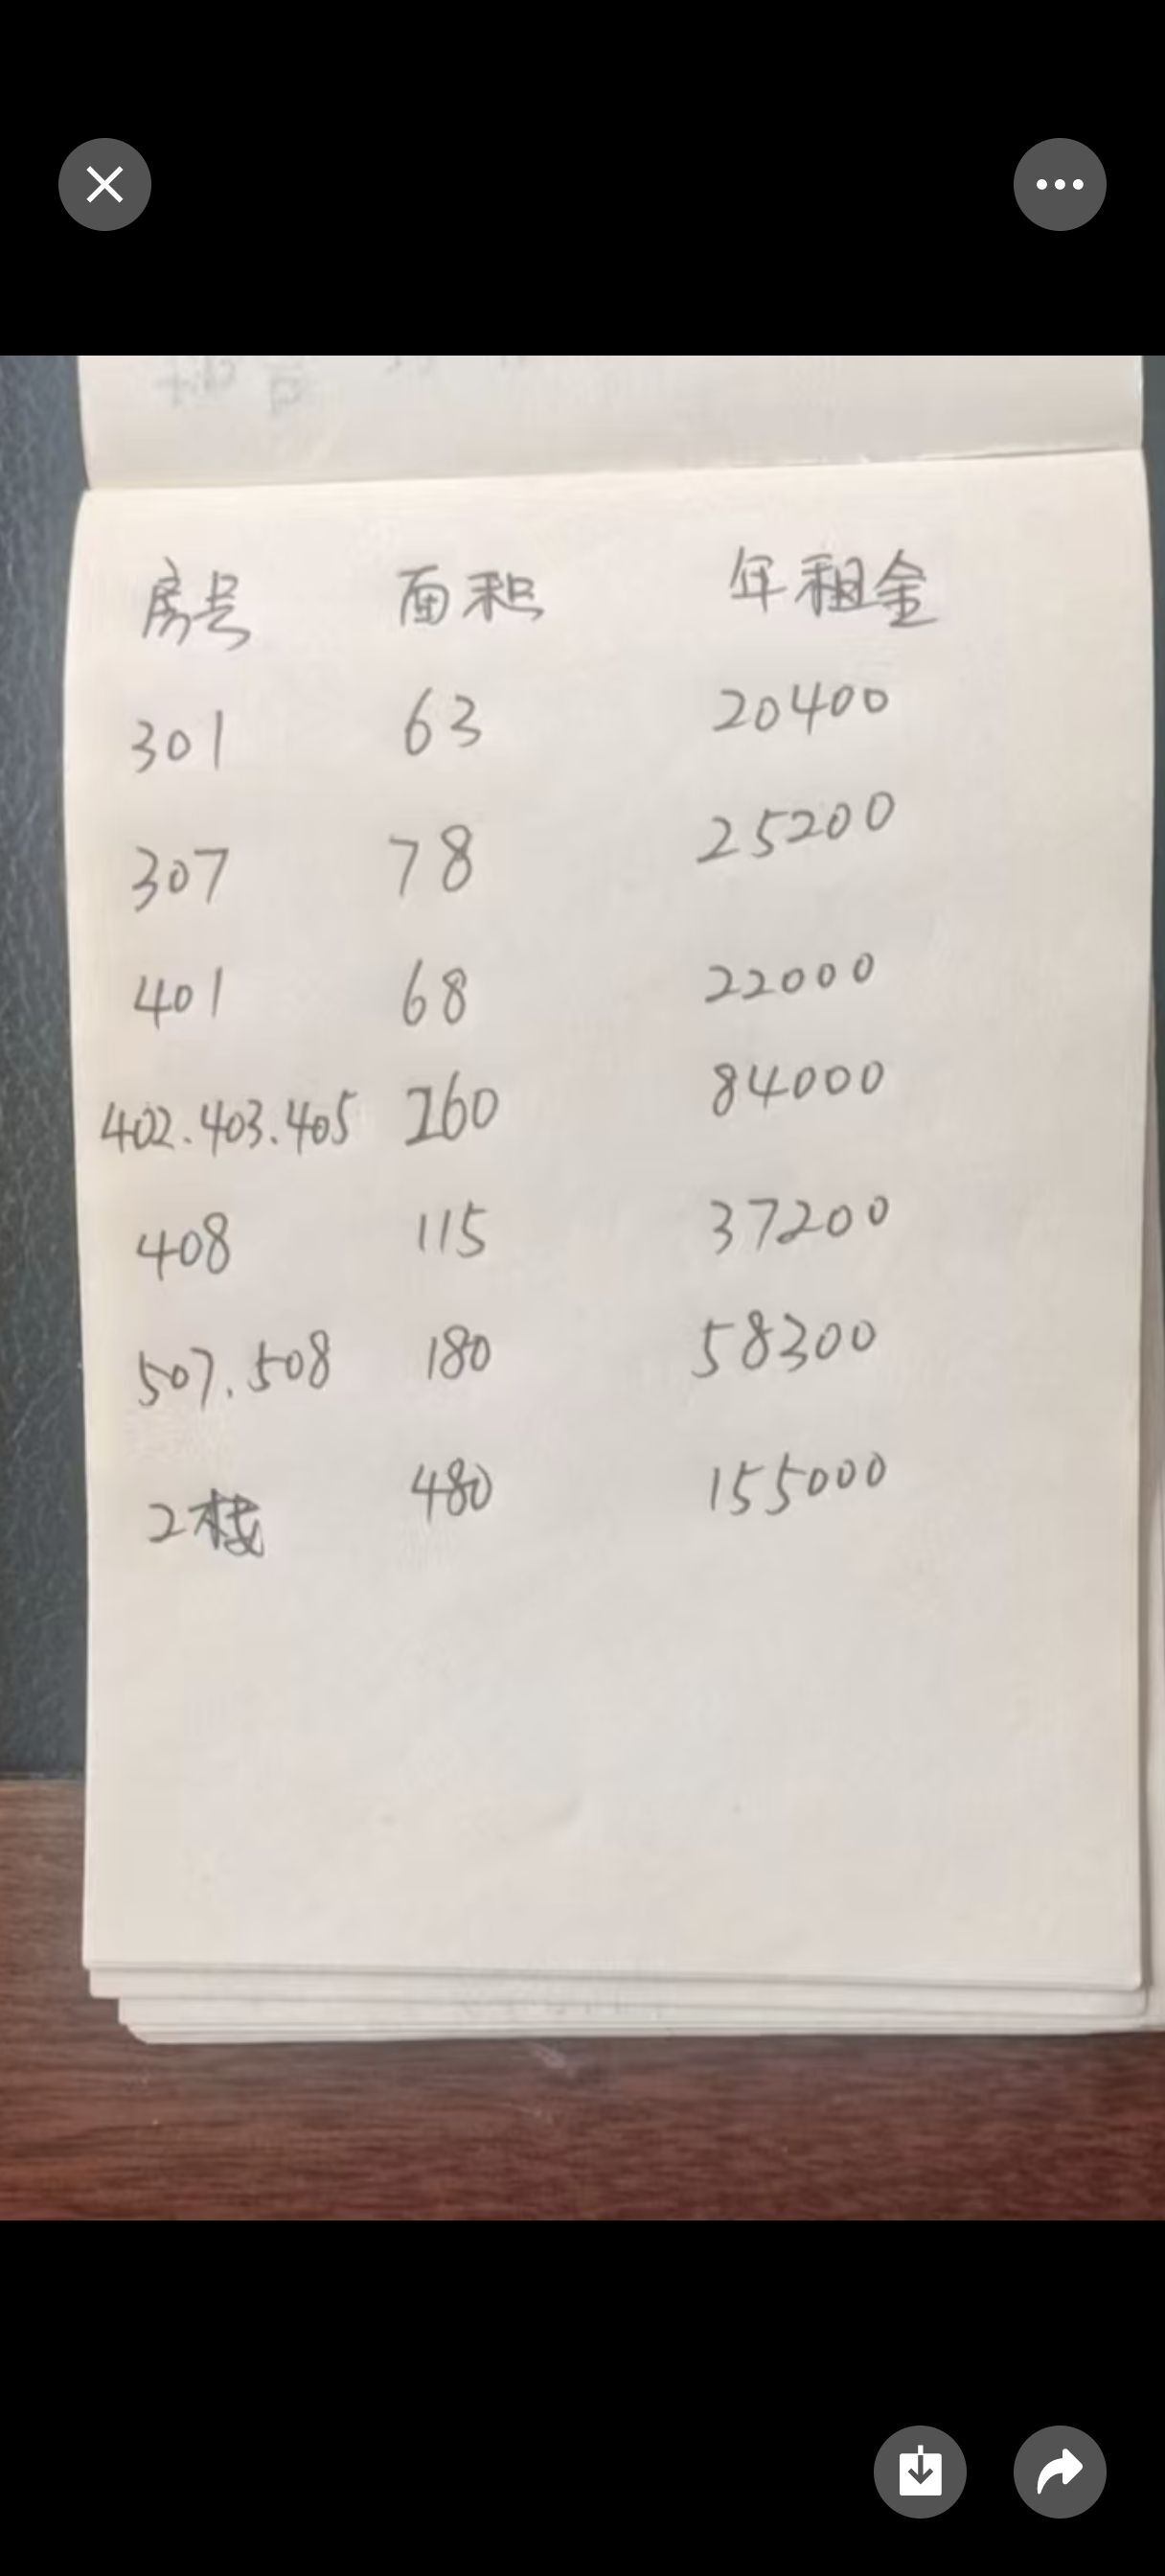 房号 面积 年租金
301 63 20400
307 78 25200
401 68 22000
402.403.405 260 84000
408 115 37200
507.508 180 58300
2栈 480 155000